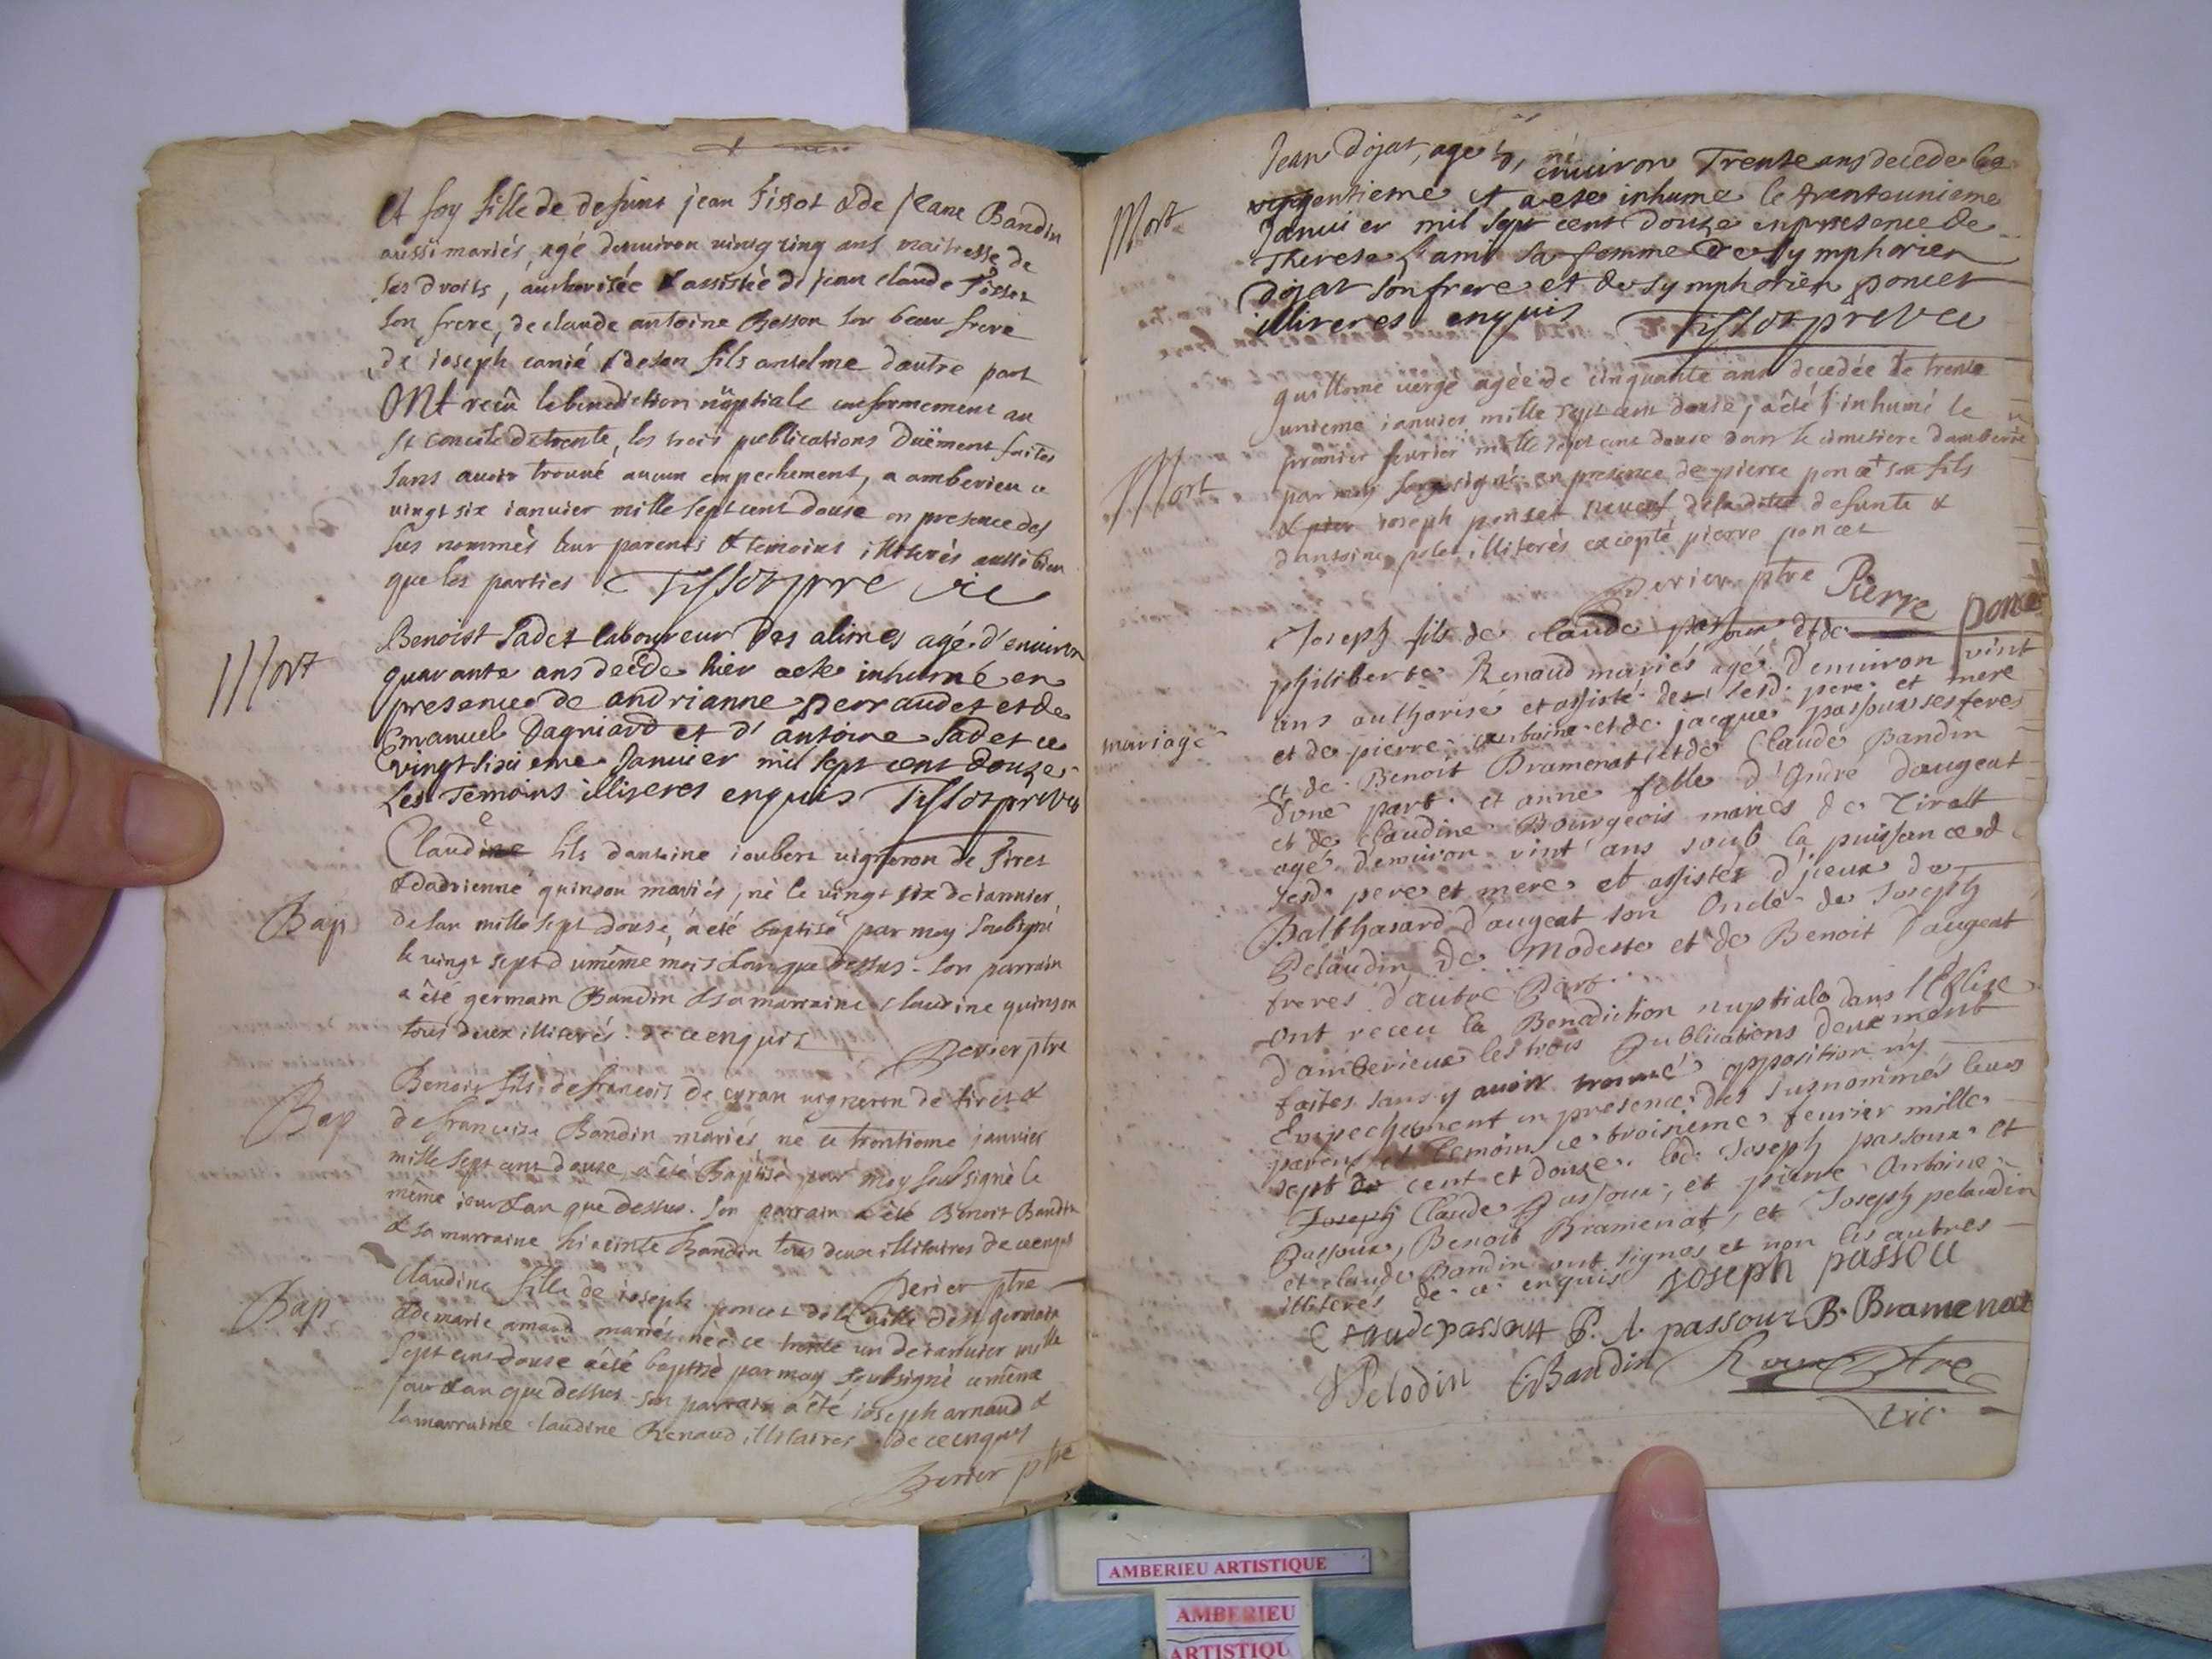 Et foy fille de defunt jean Tissot & de jeane Bandin
aussi mariés, agé denuiron vintg cinq ans maitresse de
ses droits, authorisée & assistée de jean claude Tissot
son frere, de claude antoine Besson son beau frere
de ioseph canié & de son fils anselme dautre part
Ont reçu la benediction nuptiale conformement au
St concile de trente, les trois publications duëment faites
sans auoir trouué aucun empechement, a amberieu ce
vingt six ianuier mille sept cent douse en presence des
sus nommés leur parents & temoins illiterés aussi bien
que les parties Tissot ptre vic
Mort
Benoist Sadet laboureur des alimes agé d'enuiron
quarante ans decede hier a ete inhumé en
presence de andrianne perraudet et de
Emanuel Dagniard et d'antoine Sadet ce
vingt sixieme Januier mil sept cent douze
Les Temoins illiteres enquis Tissot ptre vic
Bap
Claude fils dantoine ioubert vigneron de Tiret
& dadrienne quinson mariés, né le vingt six de ianuier
de lan mille sept douse, a été baptisé par moy soubsigné
le vingt sept du même mois & an que dessus. Son parrain
a été germain Bandin & sa marraine claudine quinson
tous deux illiterés de ce enquis
Perier ptre
Bap
Benoit fils de francois de cyran vigneron de tiret &
de francoise Bandin mariés né ce trentieme janvier
mille sept cent douse, a été Baptisé par moy soubsigné le
même iour & an que dessus. Son parrain a été Benoit Bandin
& sa marraine hiacinte Bandin tous deux illiteres de ce enquis
Perier ptre
Bap
Claudine fille de ioseph poncet de la ville de st germain
& de marie arnaud mariés née ce trente un de ianuier mille
sept cent douse a été baptisé par moy soubsigné ce même
jour & an que dessus. Son parrain a été ioseph arnaud &
la marraine claudine Renaud illiteres de ce enquis
Perier ptre
Mort
Jean Dojat, agé enuiron Trente ans decede le
vingtentieme et a ete inhume le trenteunieme
Januier mil sept cent douze en presence de
Therese Lami sa femme de Symphorien
Dojat son frere et de Symphorien poncet
illiteres enquis Tissot ptre vic
Mort
guillome verge agée de cinquante ans decedée le trente
unieme ianuier mille sept cent douse, a été inhumé le
premier feurier mille sept cent douse dans le cimetiere damberie
par moy soussigné en presence de pierre poncet son fils
& joseph poncet neueu de la ditte defunte &
dantoine illiterés excepté pierre poncet
Perier ptre Pierre poncet
mariage
Joseph fils de claude passoux et de
philiberte Renaud mariés agé d'enuiron vint
ans authorisé et assisté de sesd. pere et mere
et de pierre antoine et de jacque passoux ses freres
et de Benoit Bramenat et de Claude Bandin
d'une part et anne fille d'André Daugeat
et de Claudine Bourgeois mariés de Tirett
agé d'enuiron vint ans soub la puissance de
sesd. pere et mere et assistés d'jceux de
Balthasard d'augeat son oncle de Joseph
Pelaudin de Modeste et de Benoit Daugeat
freres d'autre Part.
ont receu la Benediction nuptiale dans l'Eglise
d'amberieux les trois Publications deuement
faites sans y auoir trouué opposition ny
Empechement en presence des susnommés leurs
parens et temoins ce troisieme feurier mille
sept cent et douze. led. Joseph passoux et
Joseph Claude Passoux, et pierre Antoine
Passoux, Benoit Bramenat, et Joseph pelaudin
et claude Bandin ont signés et non les autres
illiterés de ce enquis joseph passou
Claude passout P. A. passour B. Bramenat
J Pelodin C Bandin Ptre
vic
AMBERIEU ARTISTIQUE
AMBERIEU
ARTISTIQU